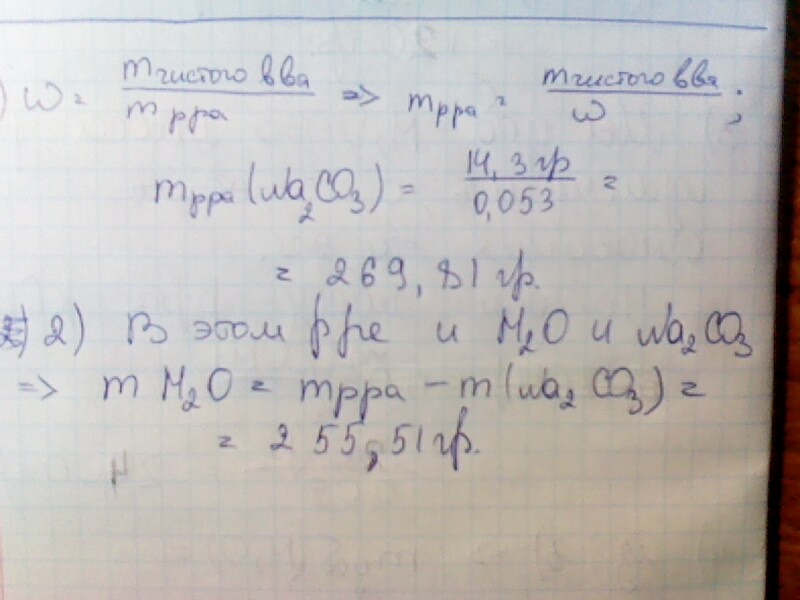 ) ω = m чистого в ва / m рра => m рра = m чистого в ва / ω ;
m рра (Na2CO3) = 14,3 гр / 0,053 =
= 269,81 гр.
2) В этом рре и H2O и Na2CO3
=> m H2O = m рра – m(Na2CO3) =
= 255,51 гр.